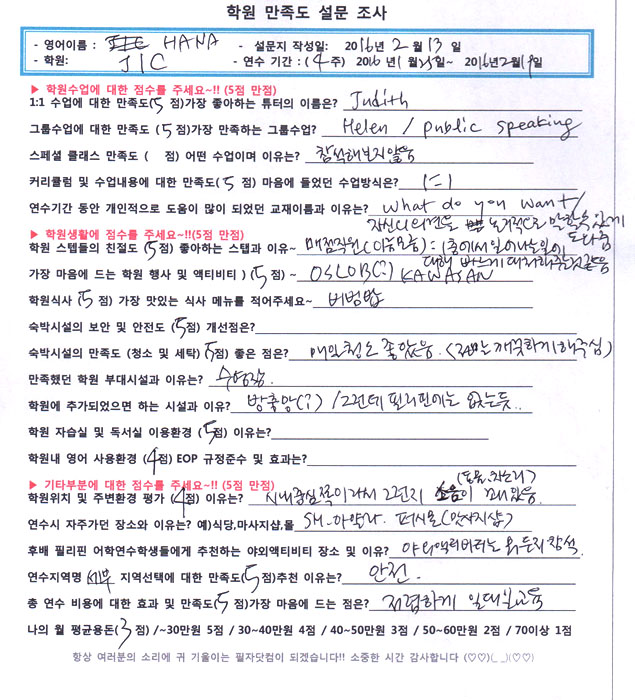 학원 만족도 설문 조사
- 영어이름 : HANA - 설문지 작성일: 2016년 2월 13일
- 학원: JIC - 연수 기간 : (4주) 2016년 1월 25일~ 2016년 2월 19일
▶ 학원수업에 대한 점수를 주세요~!! (5점 만점)
1:1 수업에 대한 만족도(5점)가장 좋아하는 튜터의 이름은? Judith
그룹수업에 대한 만족도 (5점)가장 만족하는 그룹수업? Helen / public speaking
스페셜 클래스 만족도 ( 점) 어떤 수업이며 이유는? 참석해보지않음
커리큘럼 및 수업내용에 대한 만족도(5점) 마음에 들었던 수업방식은? 1:1
연수기간 동안 개인적으로 도움이 많이 되었던 교재이름과 이유는? what do you want/
자신의 의견을 논리적으로 말할수 있게
도와줌
▶ 학원생활에 대한 점수를 주세요~!!(5점 만점)
학원 스텝들의 친절도 (5점) 좋아하는 스탭과 이유~ 매점직원(이름모름) : 1층에서 일어나는일에
대해 빠르게 대처해주는것같음
가장 마음에 드는 학원 행사 및 액티비티 ) (5점) ~ OSLOB(?) KAWASAN
학원식사 (5점) 가장 맛있는 식사 메뉴를 적어주세요~ 비빔밥
숙박시설의 보안 및 안전도 (5점) 개선점은?
숙박시설의 만족도 (청소 및 세탁) (5점) 좋은 점은? 매일청소 좋았음. 깨끗하게해주심)
만족했던 학원 부대시설과 이유는? 수영장
학원에 추가되었으면 하는 시설과 이유? 방충망(?) / 그런데 필리핀에는 없는듯..
학원 자습실 및 독서실 이용환경 (5점) 이유는?
학원내 영어 사용환경 (4점) EOP 규정준수 및 효과는?
▶ 기타부분에 대한 점수를 주세요~!! (5점 만점)
(동물, 차소리)
학원위치 및 주변환경 평가 (4점) 이유는? 시내중심쪽이라서 그런지 소음이 꽤있음.
연수시 자주가던 장소와 이유는? 예)식당,마사지샵,몰 SM. 아얄라. 퍼시몰(맛사지샵)
후배 필리핀 어학연수학생들에게 추천하는 야외액티비티 장소 및 이유? 야외액티비티는 뭐든지 참석.
연수지역명 세부 지역선택에 대한 만족도(5점)추천 이유는? 안전.
총 연수 비용에 대한 효과 및 만족도(5점)가장 마음에 드는 점은? 저렴하게 일대일교육
나의 월 평균용돈(3점) /~30만원 5점 / 30~40만원 4점 / 40~50만원 3점 / 50~60만원 2점 / 70이상 1점
항상 여러분의 소리에 귀 기울이는 필자닷컴이 되겠습니다!! 소중한 시간 감사합니다 (♡♡)(_ _)(♡♡)